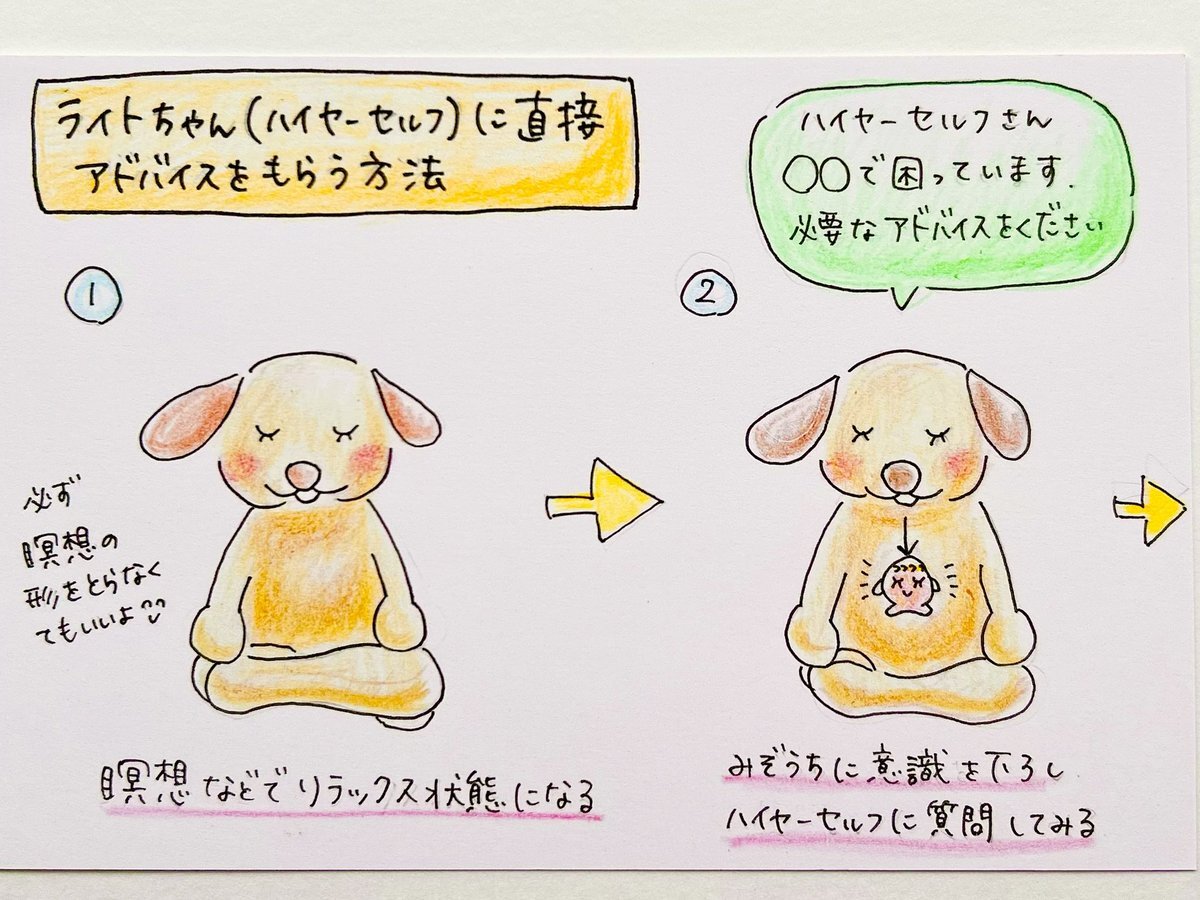 ライトちゃん(ハイヤーセルフ)に直接
アドバイスをもらう方法
1
必ず
瞑想の
形をとらなく
てもいいよ
瞑想などでリラックス状態になる
2
ハイヤーセルフさん
○○で困っています.
必要なアドバイスをください
みぞうちに意識を下ろし
ハイヤーセルフに質問してみる